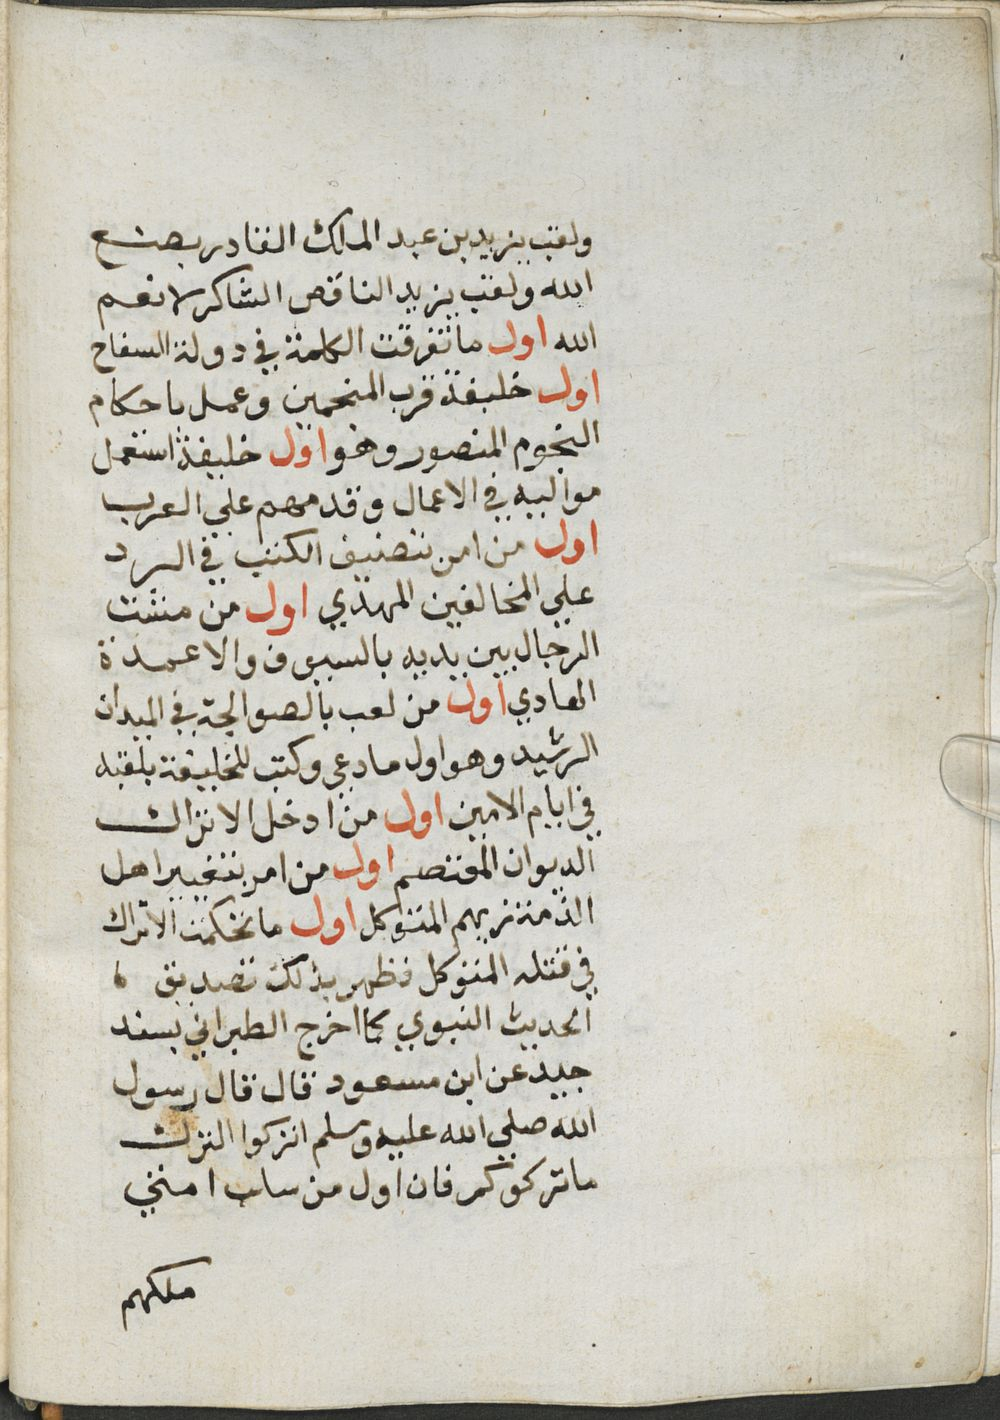 ولقب يزيد بن عبد الملك القادر بصنع
الله ولقب يزيد الناقص الشاكر لانعم
الله اول ما تفرقت الكلمة في دولة السفاح
اول خليفة قرب المنجمين وعمل باحكام
النجوم المنصور وهو اول خليفة استعمل
مواليه في الاعمال وقدمهم علي العرب
اول من امر بتصنيف الكتب في الرد
علي المخالفين المهدي اول من مشت
الرجال بين يديه بالسيوف والاعمدة
الهادي اول من لعب بالصوالجة في الميدان
الرشيد وهو اول ما دعي وكتب للخليفة بلقبه
في ايام الامين اول من ادخل الاتراك
الديوان المعتصم اول من امر بتغيير اهل
الذمة زيهم المتوكل اول ما تحكمت الاتراك
في قتله المتوكل فظهر بذلك تصديق
الحديث النبوي كما اخرج الطبراني بسند
جيد عن ابن مسعود قال قال رسول
الله صلي الله عليه وسلم اتركوا الترك
ما تركوكم فان اول من سلب امتي
ملكهم